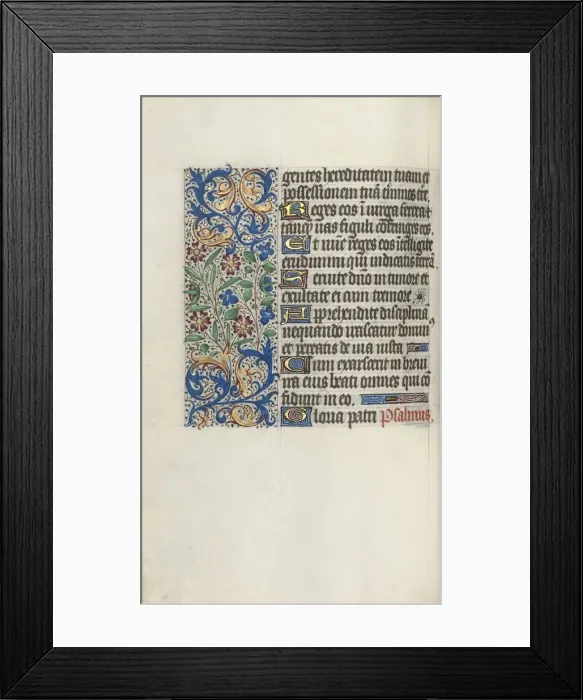 gentes hereditatem tuam et
possessionem tuā t̄minos t̄re.
Reges eos ī uirga ferrea t
tanq̄ uas figuli cōfringes eos.
Et nūc reges intelligite
erudimini qui iudicatis terrā.
Seruite dn̄o in timore et
exultate ei cum tremore
Apprehendite disciplinā
nequando irascatur domin9
et pereatis de uia iusta
Cum exarserit in breui
ira eius beati omnes qui cō
fidunt in eo.
Gloria patri Psalmus.